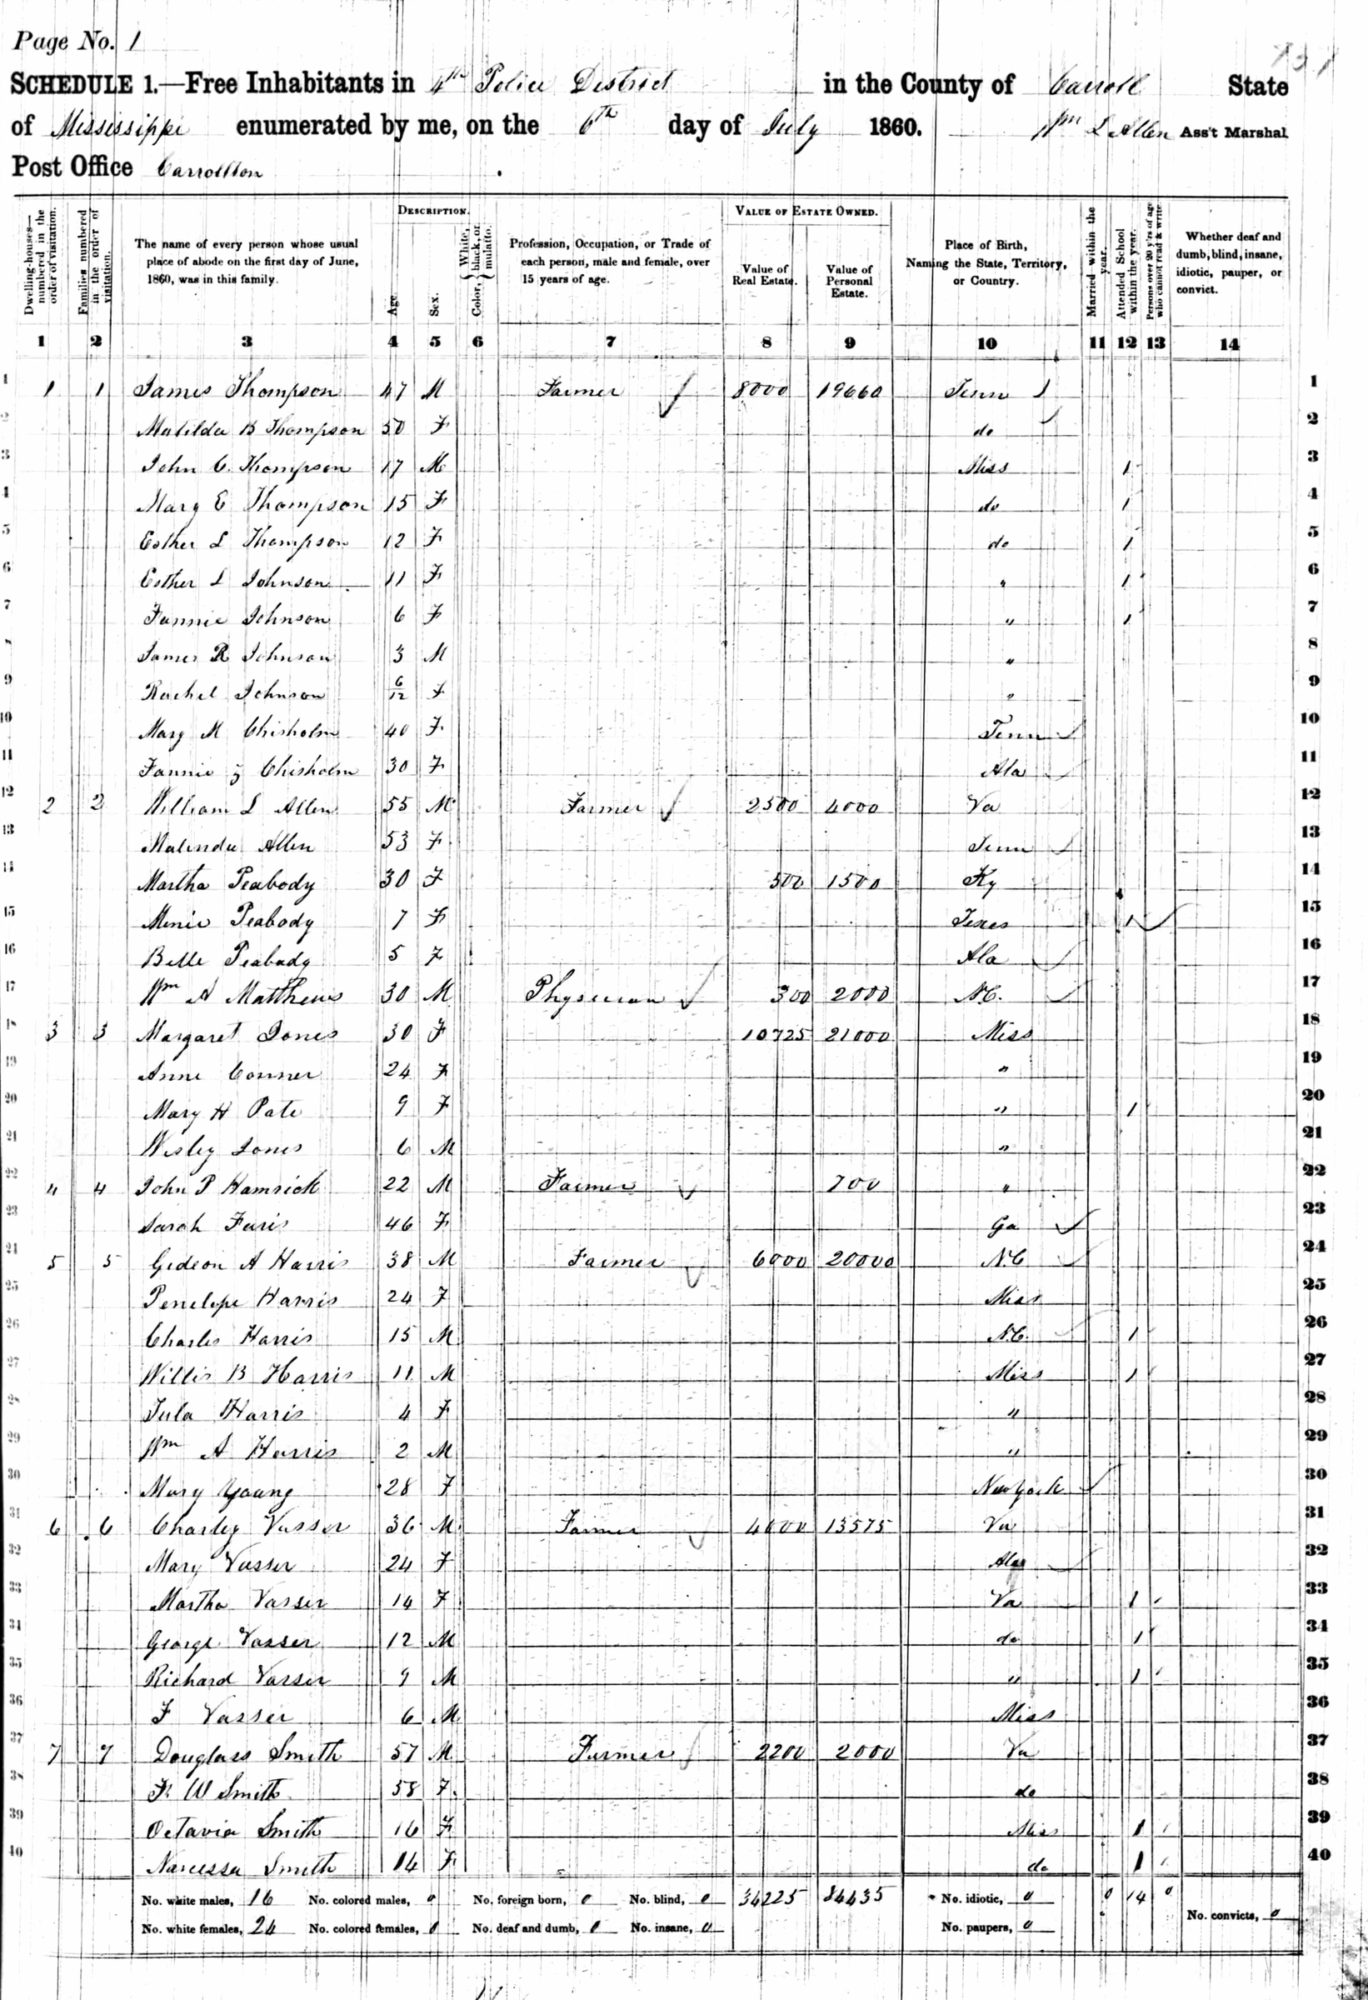 Page No. 1
SCHEDULE 1.—Free Inhabitants in 4th Police District in the County of Carroll State
of Mississippi enumerated by me, on the 6th day of July 1860. Wm L Allen Ass't Marshal
Post Office Carrollton
Dwelling-houses—numbered in the order of visitation.
Families numbered in the order of visitation.
The name of every person whose usual place of abode on the first day of June, 1860, was in this family.
DESCRIPTION.
Age.
Sex.
Color, White, black, or mulatto.
Profession, Occupation, or Trade of each person, male and female, over 15 years of age.
VALUE OF ESTATE OWNED.
Value of Real Estate.
Value of Personal Estate.
Place of Birth, Naming the State, Territory, or Country.
Married within the year.
Attended School within the year.
Persons over 20 y'rs of age who cannot read & write
Whether deaf and dumb, blind, insane, idiotic, pauper, or convict.
1 2 3 4 5 6 7 8 9 10 11 12 13 14
1 1 1 James Thompson 47 M Farmer 8000 19660 Tenn 1
2 Matilda B Thompson 50 F do 2
3 John C. Thompson 17 M Miss 1 3
4 Mary E Thompson 15 F do 1 4
5 Esther L Thompson 12 F do 1 5
6 Esther L Johnson 11 F " 1 6
7 Fannie Johnson 6 F " 1 7
8 James R Johnson 3 M " 8
9 Rachel Johnson 6/12 F " 9
10 Mary M Chisholm 40 F Tenn 10
11 Fannie Chisholm 30 F Ala 11
12 2 2 William L Allen 55 M Farmer 2500 4000 Va 12
13 Malinda Allen 53 F Tenn 13
14 Martha Peabody 30 F 500 1500 Ky 14
15 Menie Peabody 7 F Texes 1 15
16 Belle Peabody 5 F Ala 16
17 Wm A Matthews 30 M Physician 300 2000 N.C. 17
18 3 3 Margaret Jones 30 F 10725 21000 Miss 18
19 Anne Conner 24 F " 19
20 Mary H Pate 9 F " 1 20
21 Wesley Jones 6 M " 21
22 4 4 John P Hamrick 22 M Farmer 700 " 22
23 Sarah Faris 46 F Ga 23
24 5 5 Gideon A Harris 38 M Farmer 6000 20000 N.C 24
25 Penelope Harris 24 F Miss 25
26 Charles Harris 15 M N.C. 1 26
27 Willis B Harris 11 M Miss 1 27
28 Tula Harris 4 F " 28
29 Wm A Harris 2 M " 29
30 Mary Young 28 F New York 30
31 6 6 Charley Vasser 36 M Farmer 4000 13575 Va 31
32 Mary Vasser 24 F Ala 32
33 Martha Vasser 14 F Va 1 33
34 George Vasser 12 M do 1 34
35 Richard Vasser 9 M " 1 35
36 F Vasser 6 M Miss 36
37 7 7 Douglass Smith 57 M Farmer 2200 2000 Va 37
38 F. W Smith 58 F. do 38
39 Octavia Smith 16 F Miss 1 39
40 Narcissa Smith 14 F do 1 40
No. white males, 16 No. colored males, 0 No. foreign born, 0 No. blind, 0 34225 84435 No. idiotic, 0 0 14 0
No. white females, 24 No. colored females, 0 No. deaf and dumb, 0 No. insane, 0 No. paupers, 0 No. convicts, 0